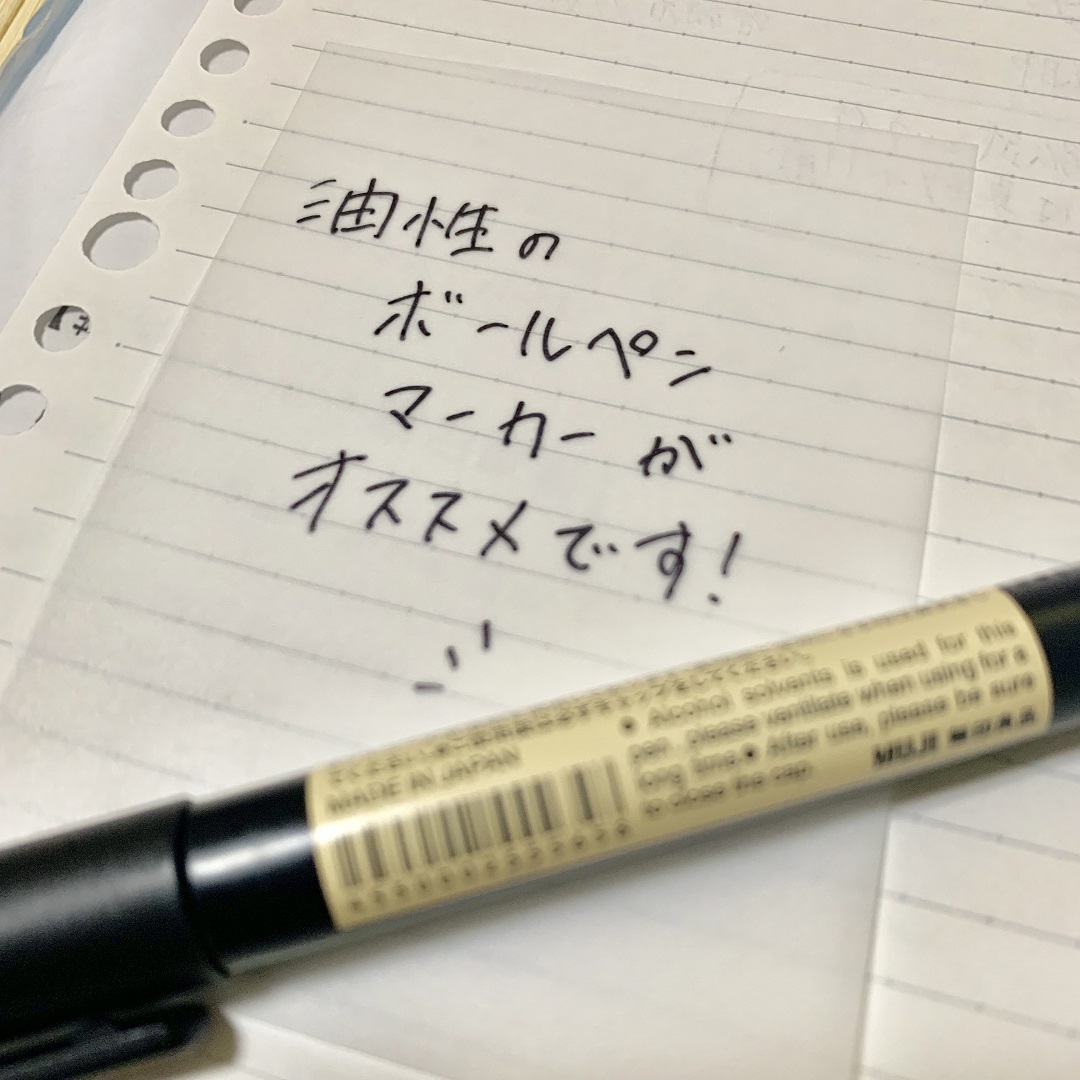 油性の
ボールペン
マーカーが
オススメです!
MADE IN JAPAN
● Alcohol solvents is used for this
pen. please ventilate when using for a
long time. ● After use, please be sure
to close the cap.
MUJI